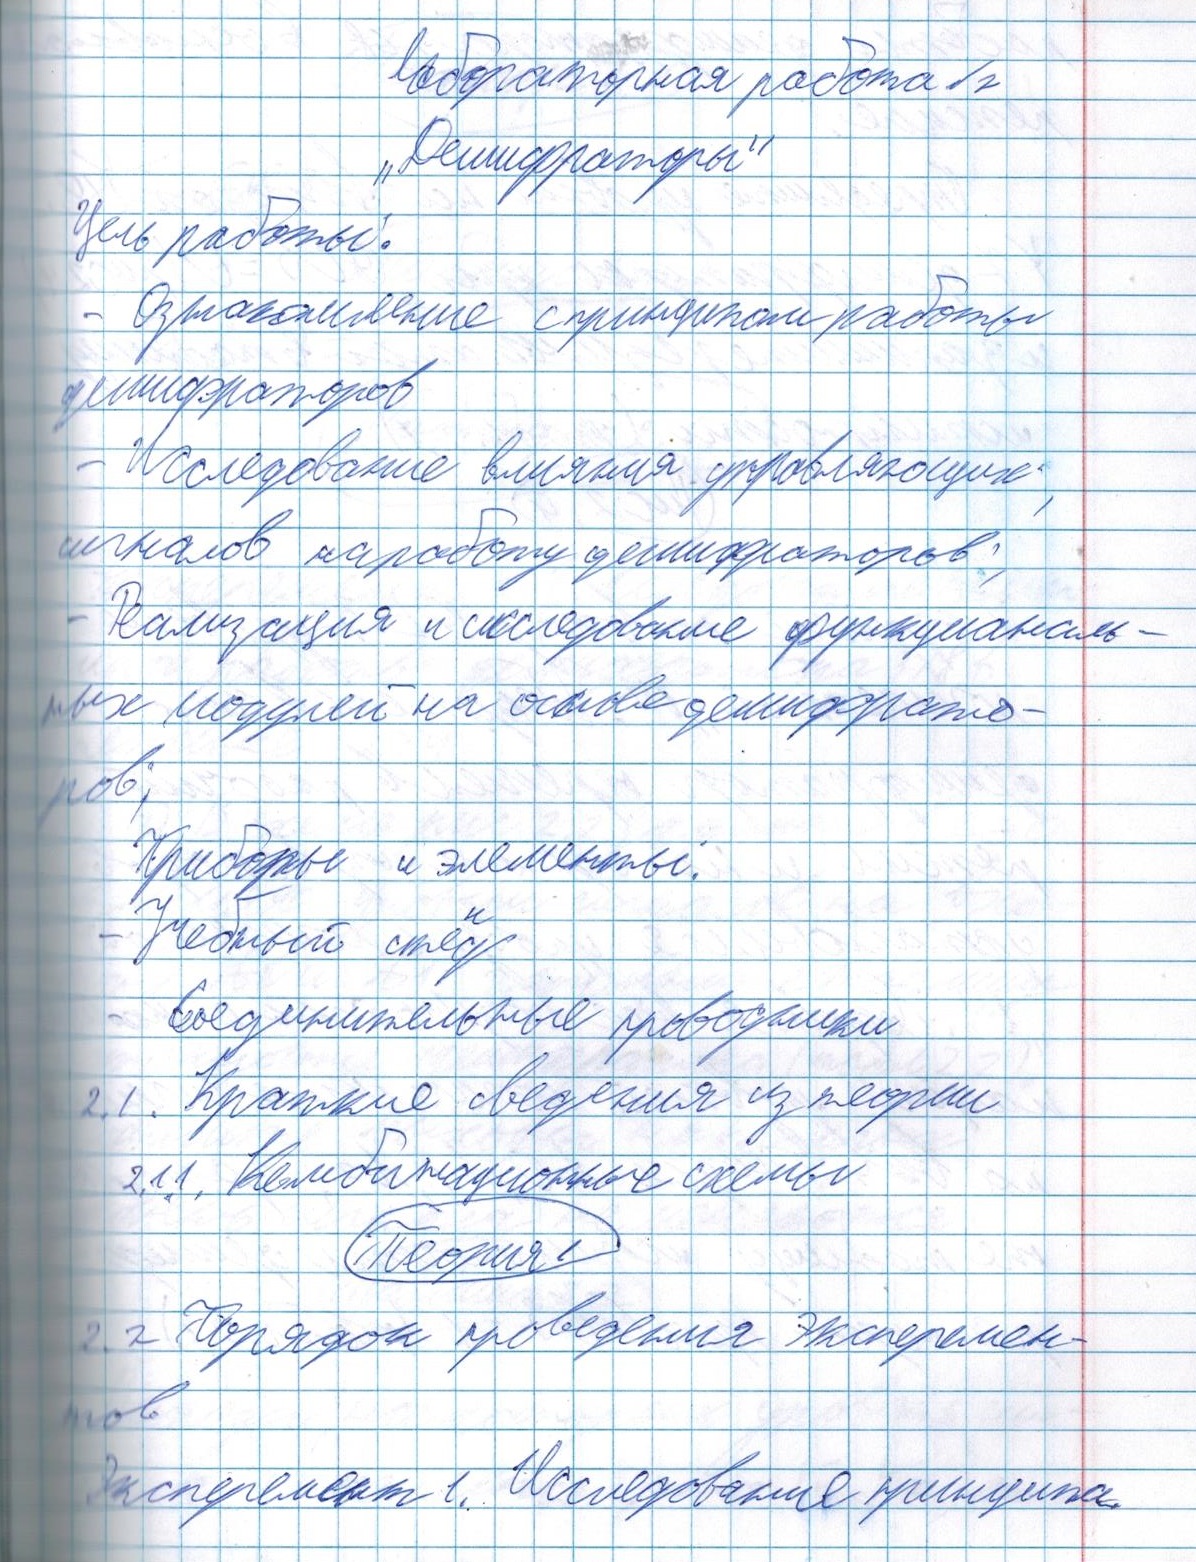 Лабораторная работа 2
„Дешифраторы"
Цель работы:
- Ознакомление с принципом работы
дешифраторов
- Исследование влияния управляющих
сигналов на работу дешифраторов;
- Реализация и исследование функциональ-
ных модулей на основе дешифрато-
ров;
Приборы и элементы:
- Учебный стенд
- Соединительные проводники
2.1. Краткие сведения из теории
2.1.1. Комбинационные схемы
Теория!
2.2 Порядок проведения эксперемен-
тов
Эксперемент 1. Исследование принципа